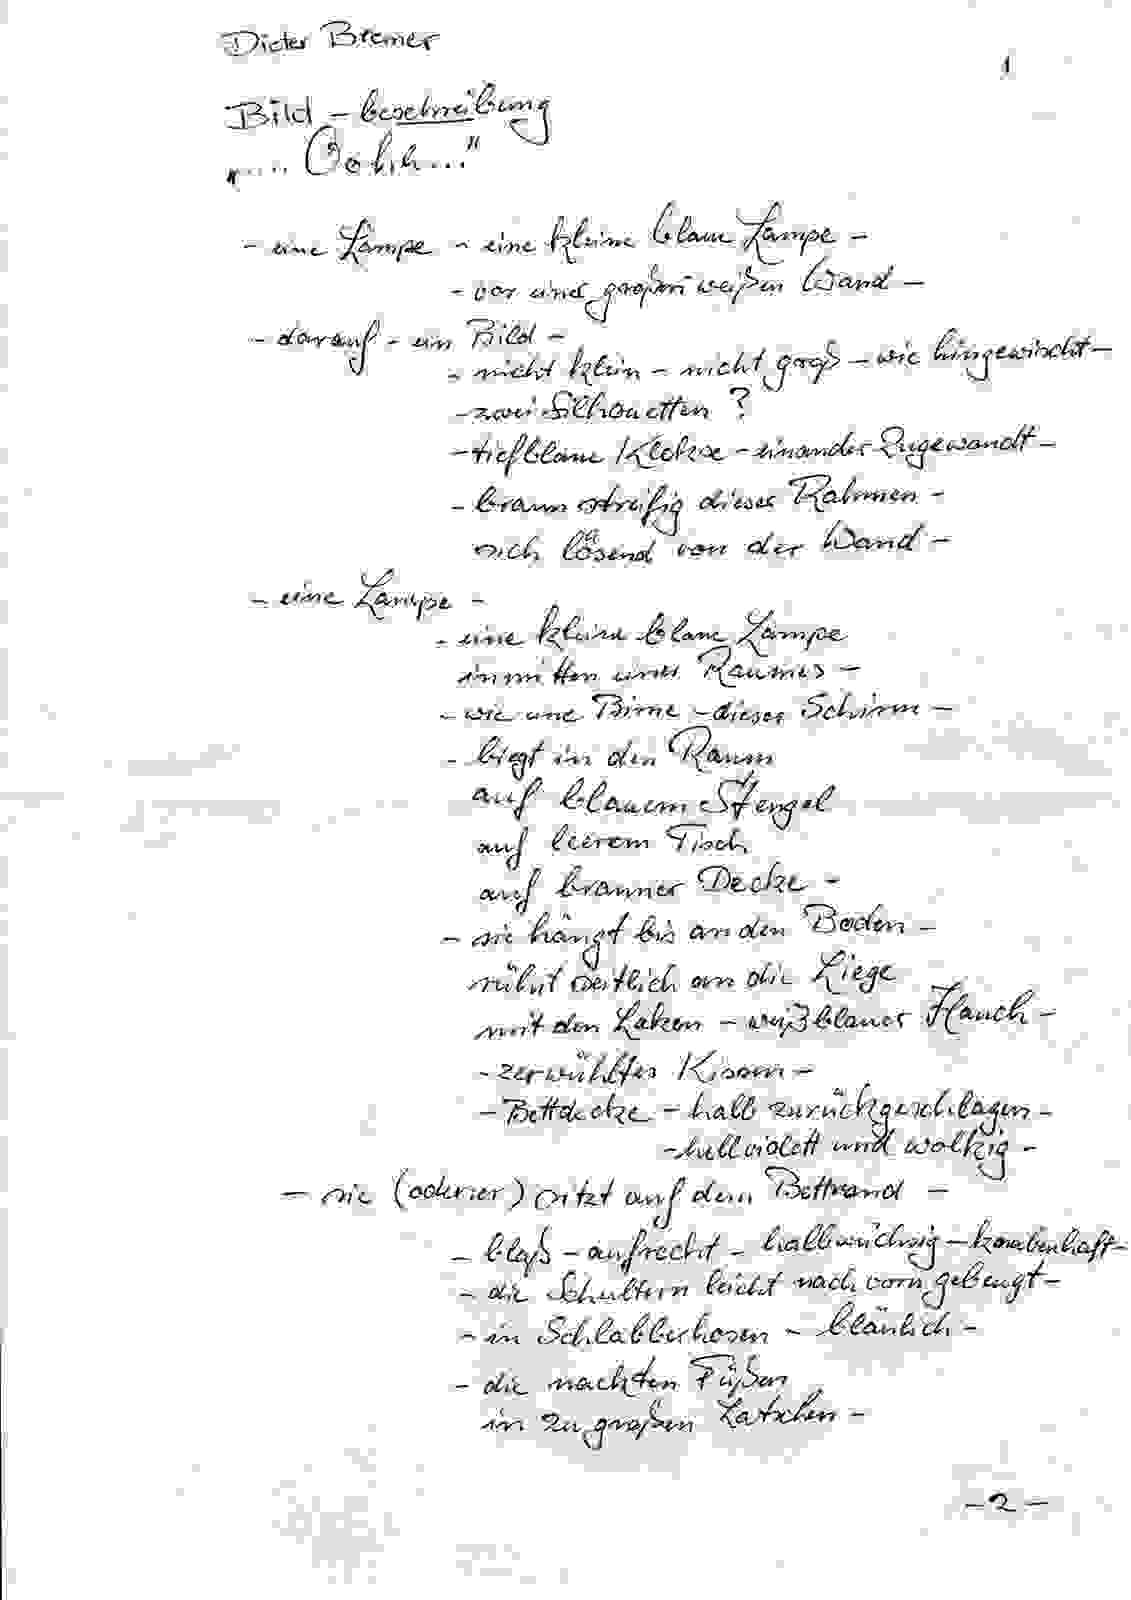 Dieter Bremer
1
Bild - beschreibung
"... Oohh..."
- eine Lampe - eine kleine blaue Lampe -
- vor einer großen weißen Wand -
- darauf - ein Bild -
- nicht klein - nicht groß - wie hingewischt -
- zwei Silhouetten ?
- tiefblaue Kleckse - einander zugewandt -
- braun streifig dieser Rahmen -
sich lösend von der Wand -
- eine Lampe -
- eine kleine blaue Lampe
inmitten eines Raumes -
- wie eine Birne - dieser Schirm -
- biegt in den Raum
auf blauem Stengel
auf leerem Tisch
auf brauner Decke -
- sie hängt bis an den Boden -
rührt seitlich an die Liege
mit den Laken - weißblauer Hauch -
- zerwühltes Kissen -
- Bettdecke - halb zurückgeschlagen -
- hellviolett und wolkig -
- sie (oder er) sitzt auf dem Bettrand -
- blaß - aufrecht - halbwüchsig - knabenhaft -
- die Schultern leicht nach vorn gebeugt -
- in Schlabberhosen - bläulich -
- die nackten Füßen
in zu großen Latschen -
- 2 -